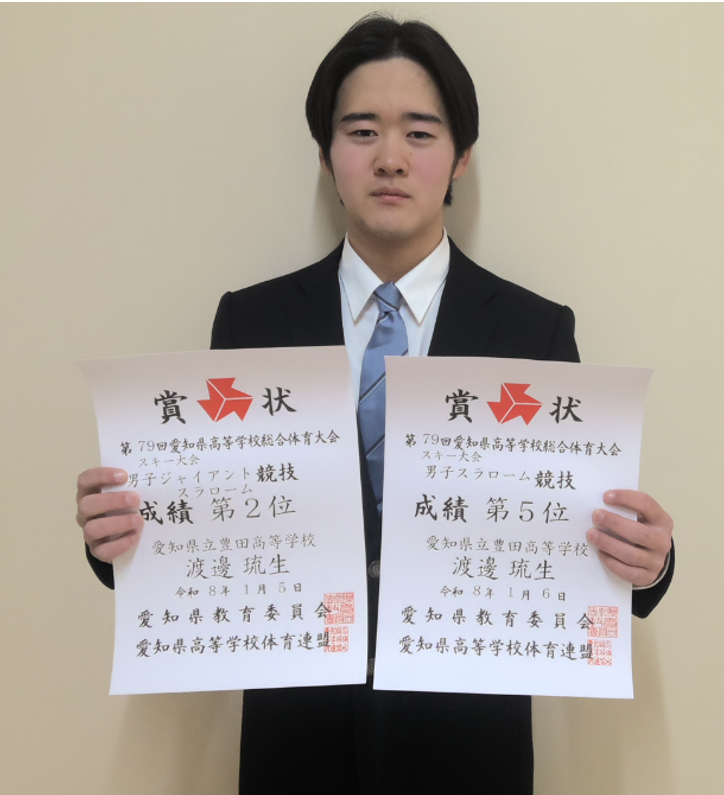 賞状
第79回愛知県高等学校総合体育大会
スキー大会
男子ジャイアント競技
スラローム
成績 第2位
愛知県立豊田高等学校
渡邊 琉生
令和8年1月5日
愛知県教育委員会
愛知県高等学校体育連盟
賞状
第79回愛知県高等学校総合体育大会
スキー大会
男子スラローム競技
成績 第5位
愛知県立豊田高等学校
渡邊 琉生
令和8年1月6日
愛知県教育委員会
愛知県高等学校体育連盟